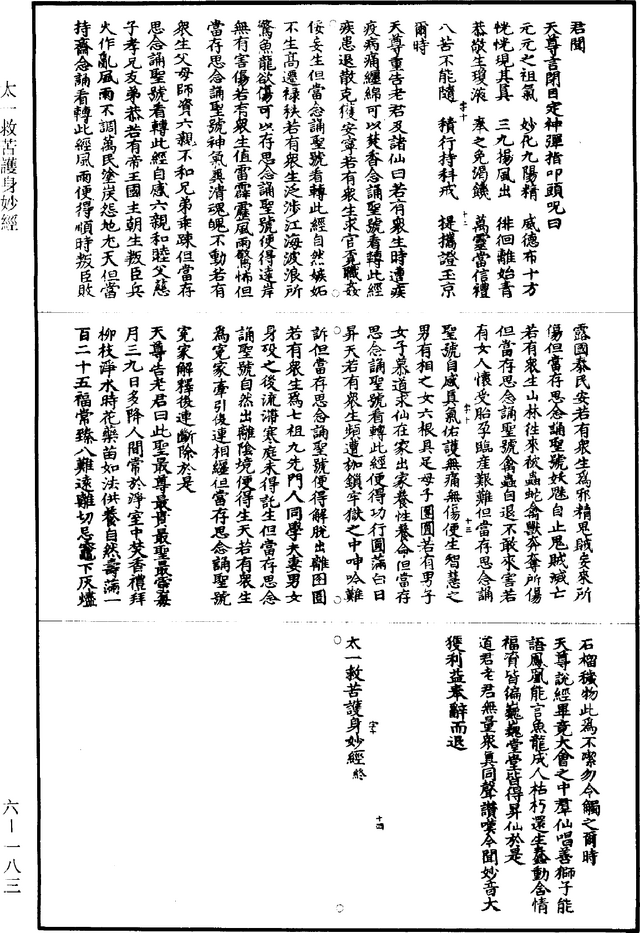 君聞
天尊言閉目定神彈指叩頭呪曰
元元之祖氣　妙化九陽精　威德布十方
恍恍現其真　三九揚風出　徘徊離始青
恭敬生瓊液　奉之免渴饑　萬靈當信禮
八苦不能隨　積行持科戒　提攜證玉京
爾時
天尊重告老君及諸仙曰若有眾生時遭疾
疫病痛纏綿可以焚香念誦聖號看轉此經
疾患退散克復安寧若有眾生求官覓職姦
佞妄生但當念誦聖號看轉此經自然嫉妬
不生高遷祿秩若有眾生泛涉江海波浪所
驚魚龍欲傷可以存思念誦聖號便得達岸
無有害傷若有眾生值雷霹靂風雨驚怖但
當存思念誦聖號神氣與清魂魄不動若有
眾生父母師資六親不和兄弟乖踈但當存
思念誦聖號看轉此經自感六親和睦父慈
子孝兄友弟恭若有帝王國主朝生叛臣兵
火作亂風雨不調萬民塗炭怨地尤天但當
持齋念誦看轉此經風雨便得順時叛臣敗
露國泰民安若有眾生為邪精鬼賊妄來所
傷但當存思念誦聖號妖魅自止鬼賊滅亡
若有眾生山林往來被蟲蛇禽獸奔奪所傷
但當存思念誦聖號禽蟲自退不敢來害若
有女人懷受胎孕臨產艱難但當存思念誦
聖號自感真氣佑護無痛無傷便生智慧之
男有相之女六根具足母子團圓若有男子
女子慕道求仙在家出家養性養命但當存
思念誦聖號看轉此經便得功行圓滿白日
昇天若有眾生頻遭枷鎖牢獄之中呻吟難
訴但當存思念誦聖號便得解脫出離囹圄
若有眾生為七祖九先門人同學夫妻男女
身歿之後流滯寒庭未得託生但當存思念
誦聖號自然出離陰境便得生天若有眾生
為冤家牽引後連相纏但當存思念誦聖號
冤家解釋後連斷除於是
天尊告老君曰此聖最尊最貴最聖最靈每
月三九日多降人間常於淨室中焚香禮拜
柳枝淨水時花藥苗如法供養自然壽滿一
百二十五福常臻八難遠離切忌竈下灰爐
石榴穢物此為不潔勿令觸之爾時
天尊說經畢竟大會之中羣仙唱善獅子能
語鳳凰能言魚龍成人枯朽還生蠢動含情
福育皆徧巍巍堂堂皆得昇仙於是
道君老君無量眾真同聲讚嘆今聞妙音大
獲利益奉辭而退
太一救苦護身妙經終
太一救苦護身妙經
六—一八三